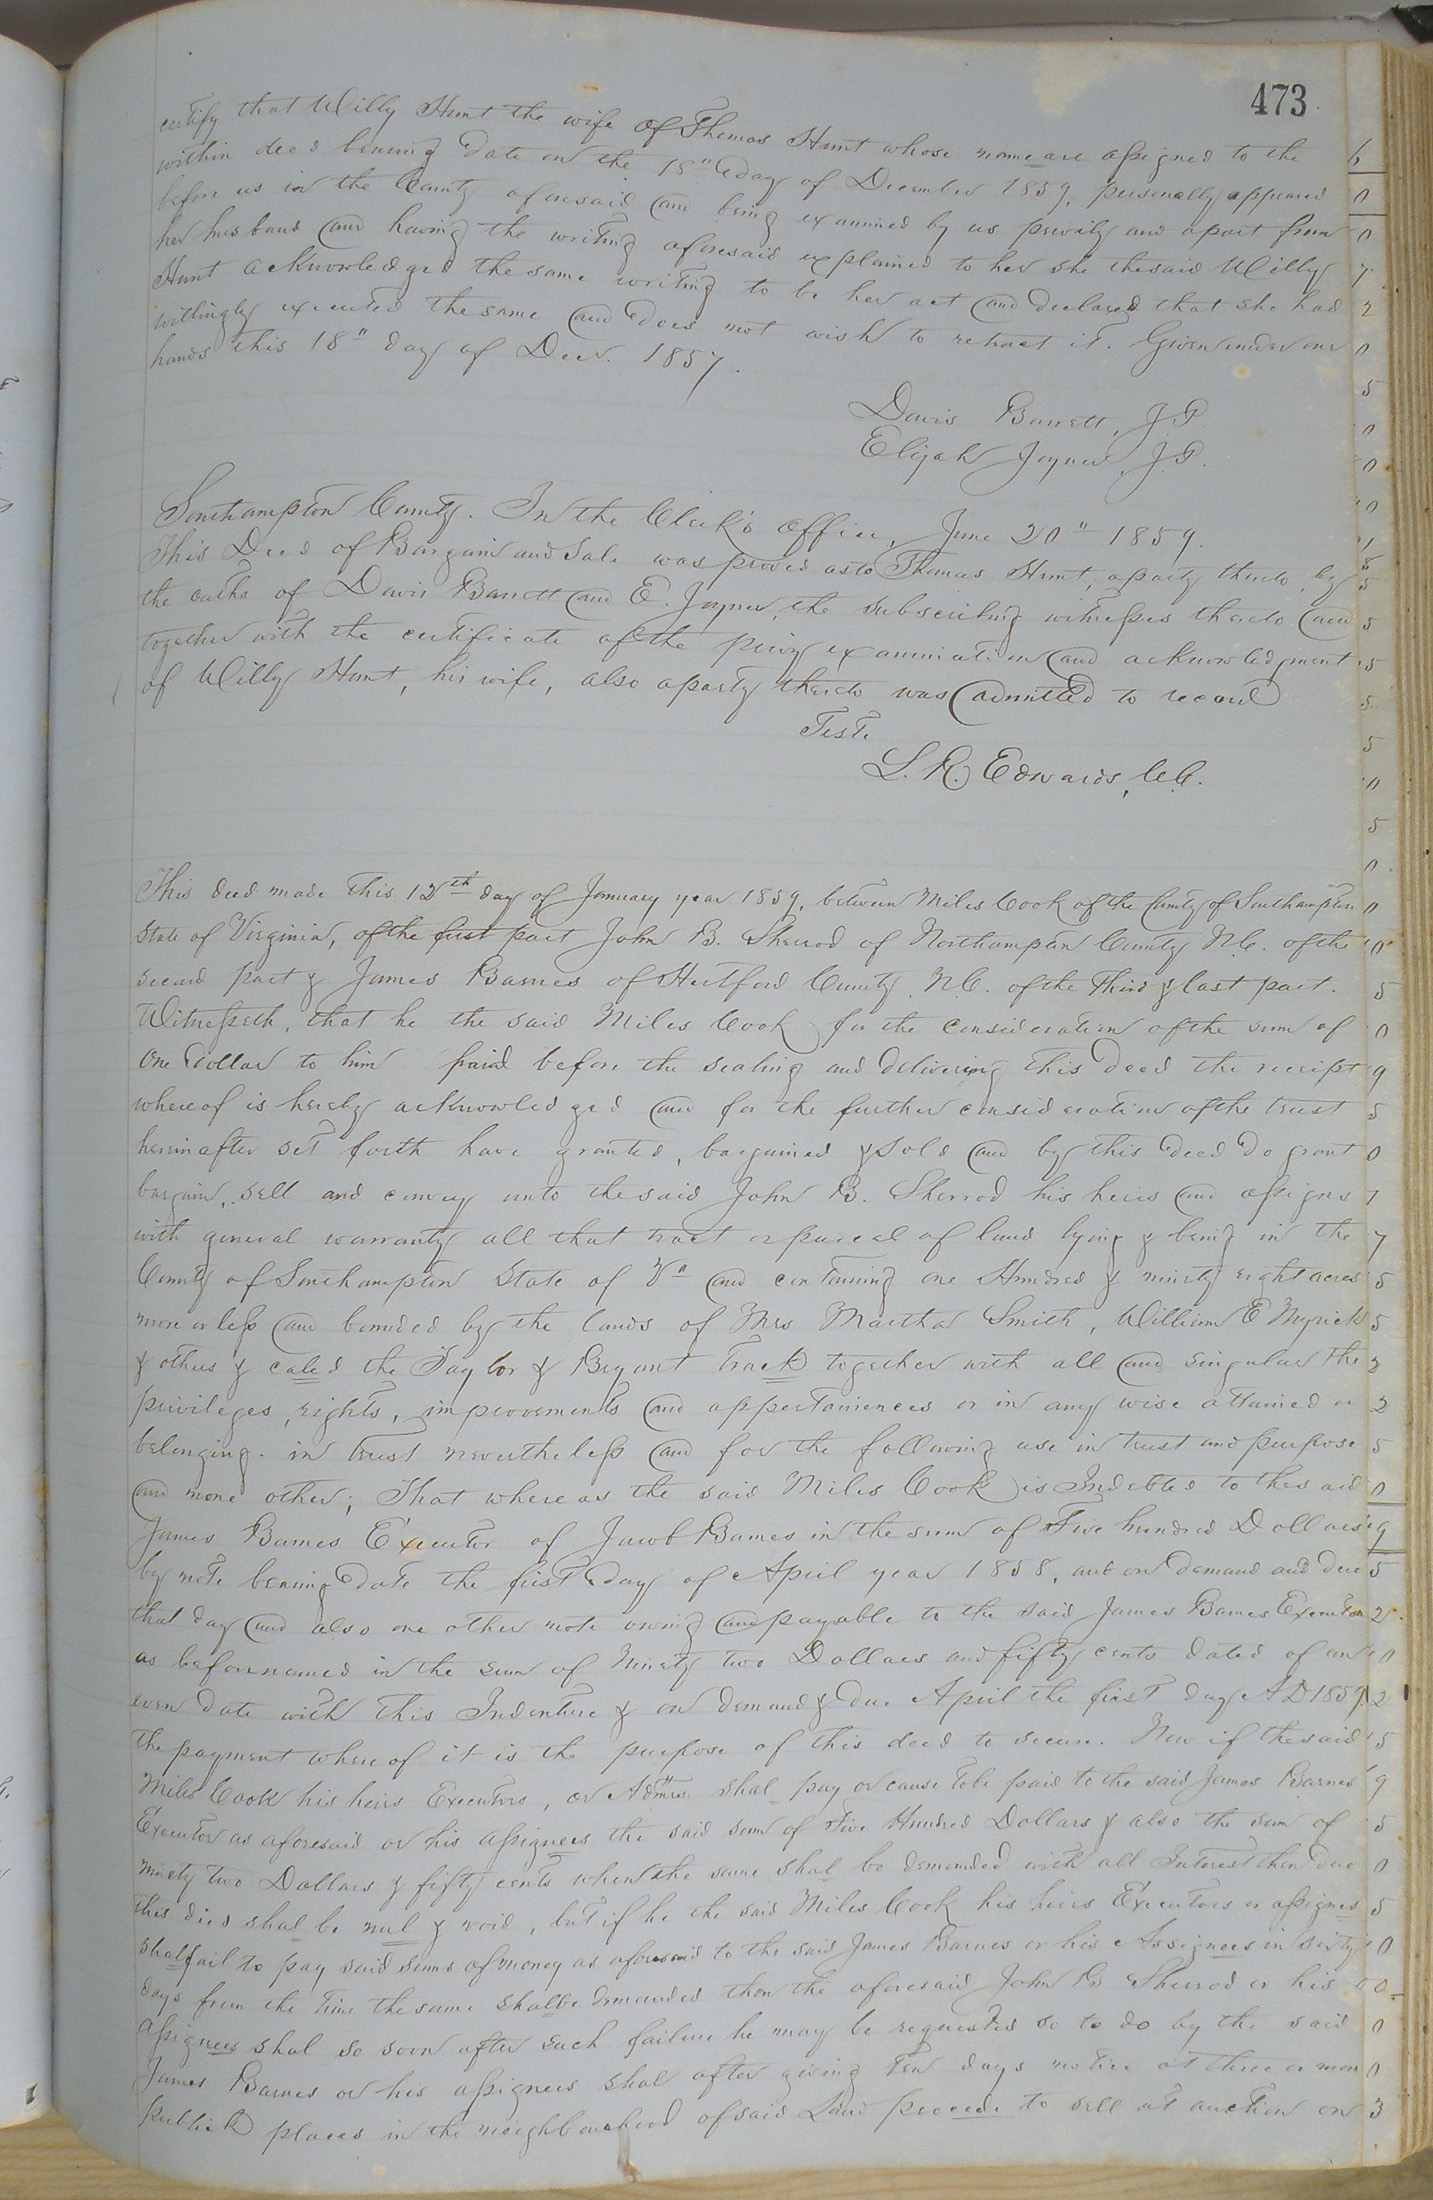 473
certify that Willy Hunt the wife of Thomas Hunt whose name are assigned to the
within deed bearing date on the 18" day of December 1857, personally appeared
before us in the County aforesaid and being examined by us privily and apart from
her husband and having the writing aforesaid explained to her she the said Willy
Hunt acknowledged the same writing to be her act and declared that she had
willingly executed the same and does not wish to retract it. Given under our
hands this 18" day of Decr. 1857.
Davis Barrett, J.P.
Elijah Joyner, J.P.
Southampton County. In the Clerk's Office, June 20" 1859.
This Deed of Bargain and Sale was proved as to Thomas Hunt, a party thereto by
the oaths of Davis Barrett and E. Joyner, the subscribing witnesses thereto and
together with the certificate of the privy examination and acknowledgment
of Willy Hunt, his wife, also a party thereto was admitted to record
Teste
L. R. Edwards, C.C.
This deed made this 12th day of January year 1859, between Miles Cook of the County of Southampton
State of Virginia, of the first part John B. Sherrod of Northampton County N.C. of the
second part & James Barnes of Hertford County N.C. of the Third & last part.
Witnesseth, that he the said Miles Cook for the consideration of the sum of
One Dollar to him paid before the sealing and delivering this Deed the receipt
whereof is hereby acknowledged and for the further consideration of the trust
hereinafter set forth have granted, bargained & sold and by this Deed Do grant
bargain, sell and convey unto the said John B. Sherrod his heirs and assigns
with general warranty all that tract or parcel of land lying & being in the
County of Southampton State of Va and containing one Hundred & ninety eight acres
more or less and bounded by the lands of Mrs Martha Smith, William E Myrick
& others & caled the Taylor & Bryant Track together with all and singular the
privileges, rights, improvements and appertainences or in any wise attained or
belonging. in trust nevertheless and for the following use in trust and purpose
and mone other; That where as the said Miles Cook is Indebted to the said
James Barnes Executor of Jacob Barnes in the sum of Five hundred Dollars
by note bearing Date the first Day of April year 1858, and on demand and due
that day and also one other note owing and payable to the said James Barnes Executor
as before named in the sum of Ninety two Dollars and fifty cents dated of an
even Date with this Indenture & on demand & Due April the first day AD 1859,
the payment where of it is the purpose of this deed to secure. Now if the said
Miles Cook his heirs Executors, or Admrs shal pay or cause to be paid to the said James Barnes
Executor as aforesaid or his Assignees the said sum of Five Hundred Dollars & also the sum of
ninety two Dollars & fifty cents when the same shal be demanded with all Interest then Due
this deed shal be nul & void, but if he the said Miles Cook his heirs Executors or assignes
shal fail to pay said sums of money as aforesaid to the said James Barnes or his Assignees in sixty
days from the time the same shal be demanded then the aforesaid John B Sherrod or his
Assignees shal so soon after such failure he may be requested so to do by the said
James Barnes or his assignees shal after giving ten days notice at three or more
publick places in the neighbourhood of said Land procede to sell at auction on